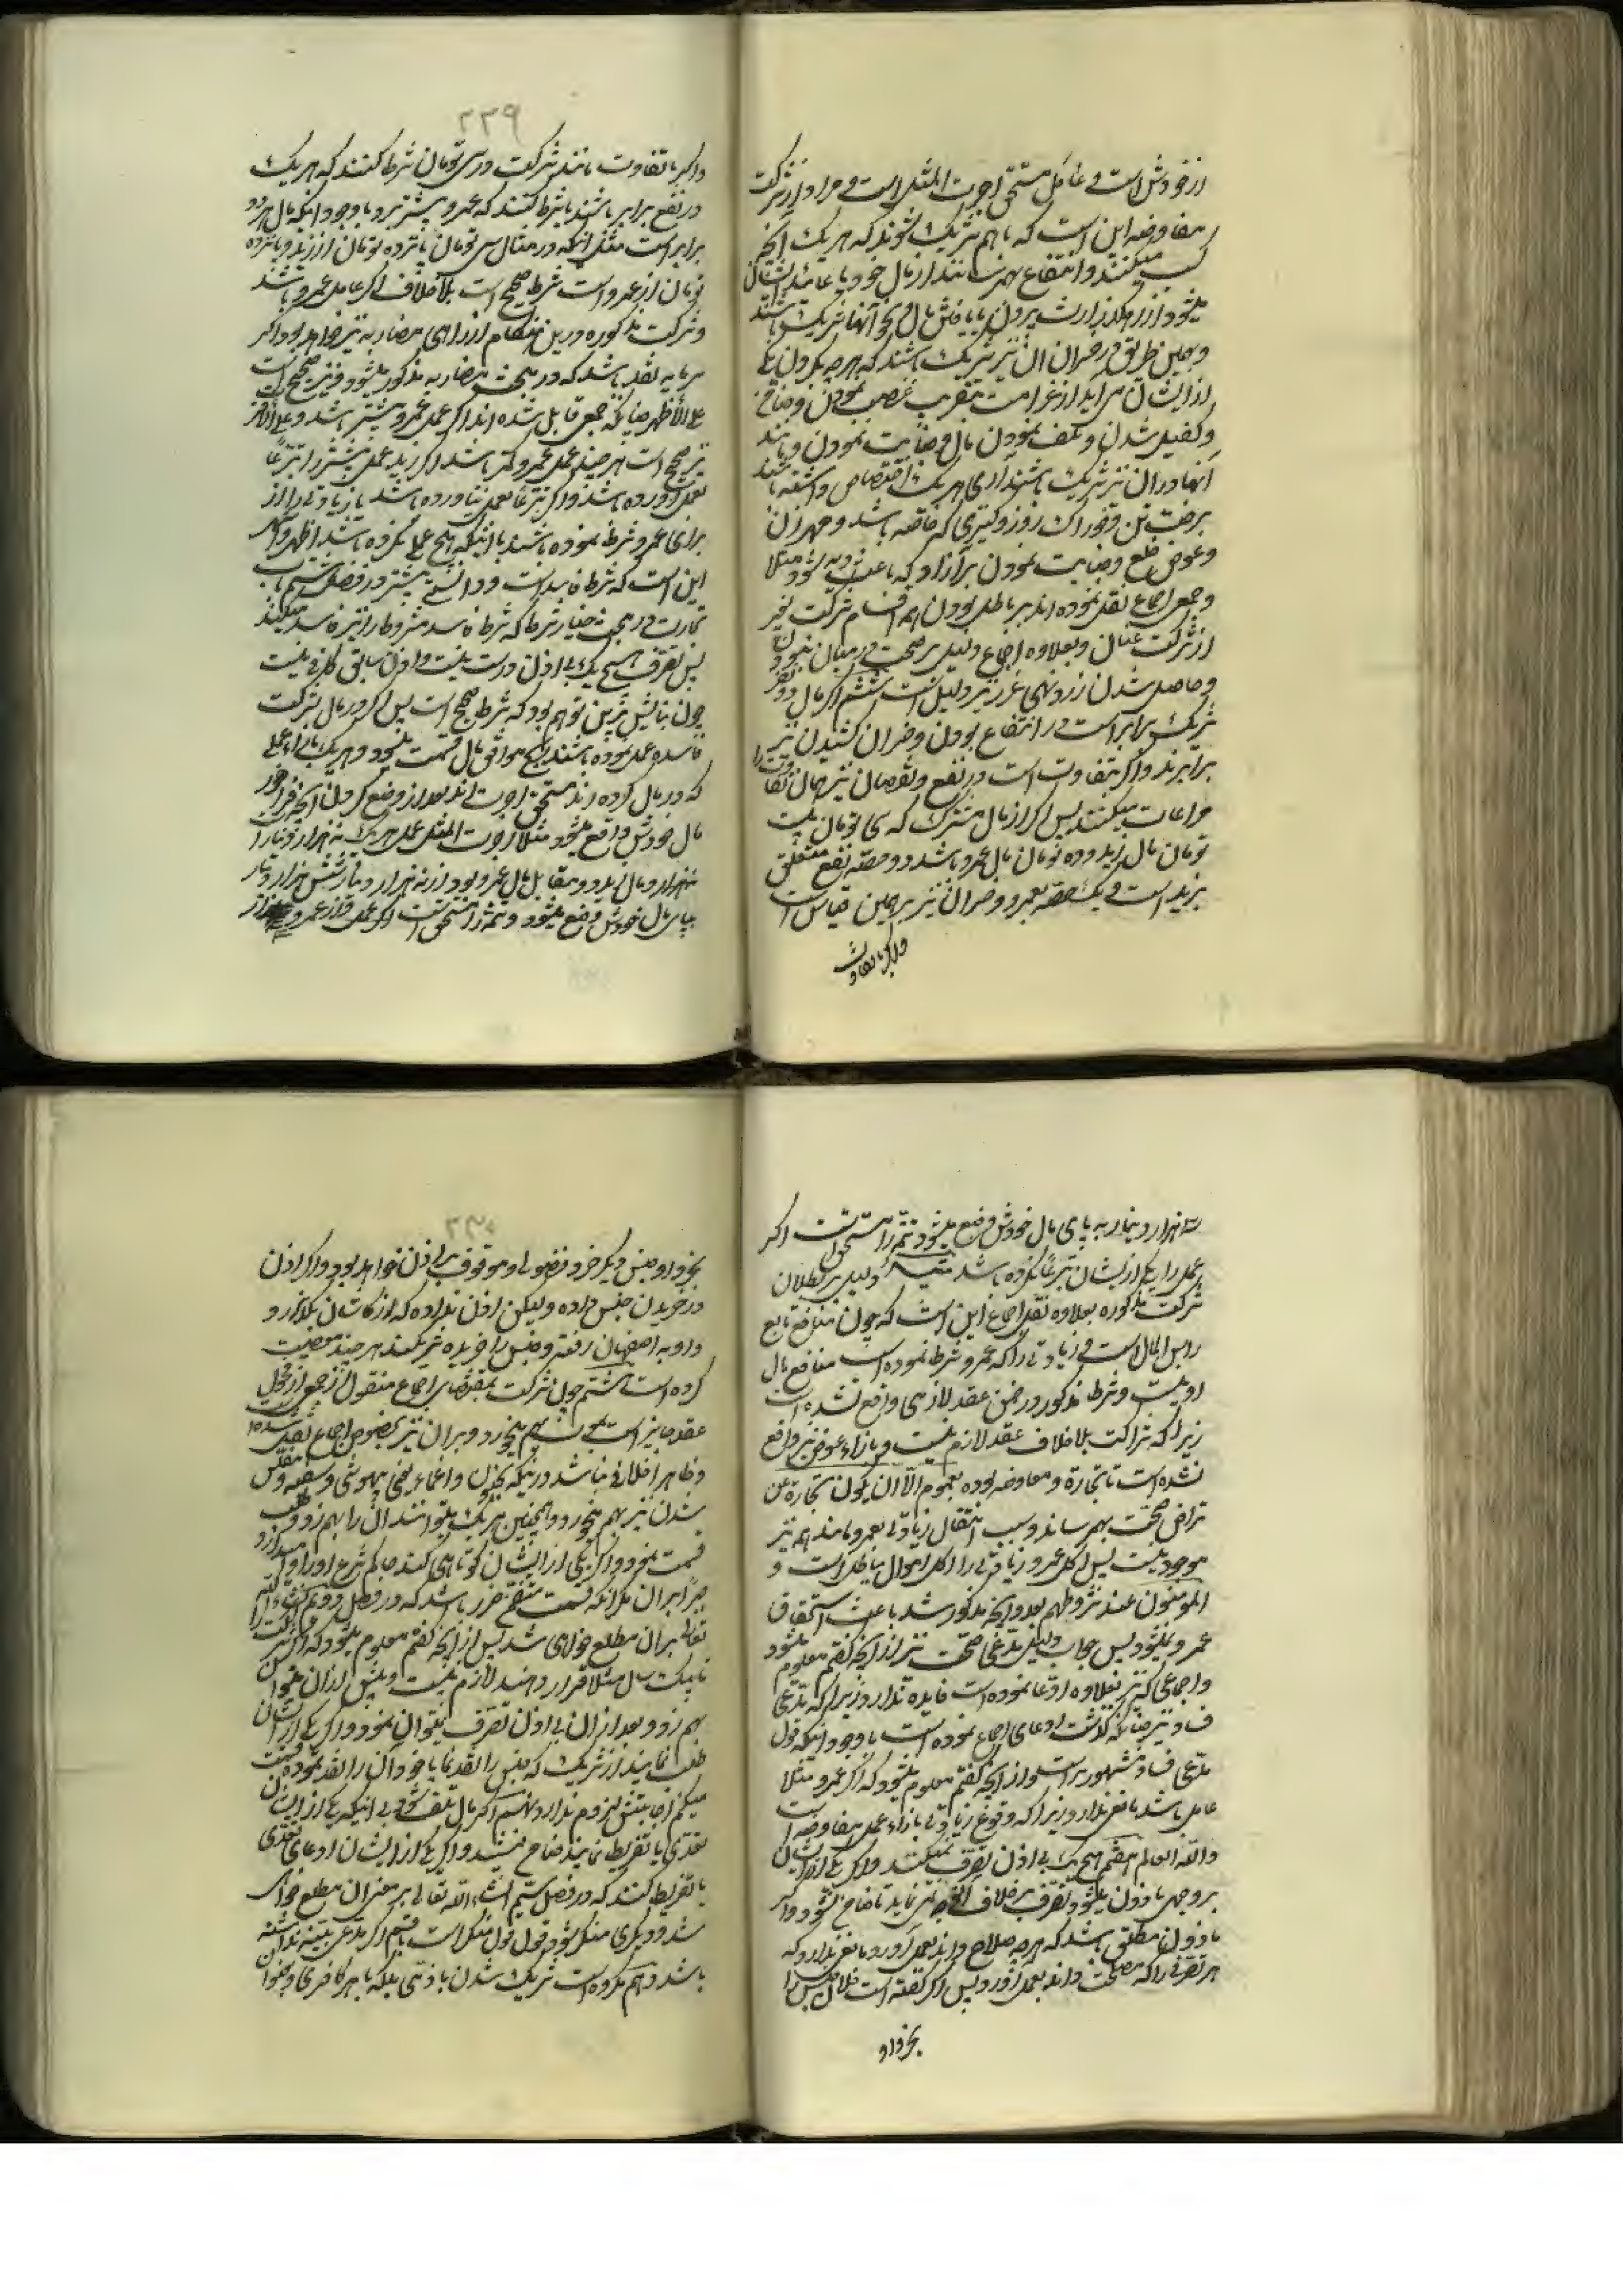 از خودش است و عامل مستحق اجرت المثل است و مراد از شرکت
مفاوضه این است که با هم شریک شوند که هر یک آنچه
کسب میکنند و انتفاع بهم رسانند از مال خود یا عاید ایشان
میشود از رهگذر ارث بردن یا یافتن مال و نحو آنها شریک باشند
و بهمین طریق در خسران آن نیز شریک باشند که هر چه بگردن یکی
از ایشان می آید از غرامت بتقریب غصب نمودن و ضامن
و کفیل شدن و تلف نمودن مال و جنایت نمودن و مانند
آنها در آن نیز شریک باشند
برخت تن و خوراک روز و کنیزی که خاصه باشد و مهر زن
و عوض خلع و جنایت نمودن بر آزاد که باعث دیه شود مثلا
و جمعی اجماع نقل نموده اند بر باطل بودن همه اقسام شرکت بغیر
از شرکت عنان و بعلاوه اجماع دلیل بر صحت در میان نبودن
و حاصل شدن زر و نهی غرر نیز دلیل است ششم اگر مال دو نفر
شریک برابر است در انتفاع بردن و خسران کشیدن نیز
برابرند و اگر بتفاوت است در نفع و نقصان نیز همان تفاوت را
مراعات میکنند پس اگر از مال مشترک که سی تومان بیست
تومان مال زید و ده تومان مال عمرو باشد دو حصه نفع متعلق
بزید است و یک حصه بعمرو و خسران نیز بر همین قیاس است
و اگر با تفاوت
۲۲۹
و اگر با تفاوت مانند شرکت در سی تومان شرط کنند که هر یک
در نفع برابر باشند یا شرط کنند که عمرو بیشتر برد با وجود اینکه مال هر دو
برابر است مثل اینکه در مثال سی تومان پانزده تومان از زید و پانزده
تومان از عمرو است شرط صحیح است بلا خلاف اگر عامل عمرو باشد
و شرکت مذکوره درین هنگام از راهی مضاربه نیز خواهد بود اگر
سرمایه نقد باشد که در مبحث مضاربه مذکور میشود و نیز صحیح است
علی الأظهر چنانکه جمعی قایل شده اند اگر عمل عمرو بیشتر باشد و علی الاظهر
نیز صحیح است هر چند عمل عمرو کمتر باشد اگر زید عمل بیشتر را تبرعا
بعمل آورده باشد و اگر تبرعا بعمل نیاورده باشد یا زیادتی را از
برای عمرو شرط نموده باشند با اینکه هیچ عملی نکرده باشد اظهر و اشهر
این است که شرط فاسد است و دانستی پیشتر در فصل ششم باب
تجارت در مبحث خیار شرط که شرط فاسد مشروط را نیز فاسد میکند
پس تصرف هیچ یک بی اذن درست نیست و اذن سابق کافی نیست
چون بنایش برین توهم بود که شرط صحیح است پس اگر در مال شرکت
فاسده عمل نموده باشند نفع موافق مال قسمت میشود و هر یک بازاء عملی
که در مال کرده اند مستحق اجرت اند بعد از وضع کردن آنچه فراخور
مال خودش واقع میشود مثلا اجرت المثل عمل هر یک نه هزار دینار
بپای مال خودش وضع میشود و تتمه را مستحق است اگر عمل
سه هزار دینار به پای مال خودش وضع میشود و تتمه را مستحق است اگر
عمل را یکی از ایشان تبرعا نکرده باشد و دلیل بر بطلان
شرکت مذکوره بعلاوه نقل اجماع این است که چون منافع تابع
رأس المال است و زیادتی را که عمرو شرط نموده است منافع مال
او نیست و شرط مذکور در ضمن عقد لازمی واقع نشده است
زیرا که شراکت بلا خلاف عقد لازم نیست و بازاء عوض نیز واقع
نشده است تا تجارة و معاوضه بوده بعموم الّا ان یکون تجارة عن
تراض صحت بهم رساند و سبب انتقال زیادتی بعمرو مانند هبه نیز
موجود نیست پس اکل عمرو زیادتی را اکل اموال بباطل است و
المؤمنون عند شروطهم بعد و آنچه مذکور شد باعث استحقاق
عمرو نمیشود پس جواب دلیل مدعی صحت نیز از آنچه گفتم معلوم میشود
و اجماعی که نیز بعلاوه ادعا نموده است فایده ندارد زیرا که مدعی
فساد نیز چنانکه گذشت ادعای اجماع نموده است با وجود اینکه قول
مدعی فساد مشهورتر است و از آنچه گفتم معلوم میشود که اگر عمرو مثلا
عامل باشد مانعی ندارد زیرا که وقوع زیادتی بازاء عمل معاوضه است
و الله العالم هفتم هیچ یک بی اذن تصرف نمیکند و اگر یکی از ایشان
بر وجهی مأذون میشود تصرف بر خلاف آن وجه نمی نماید تا ضامن نشود و اگر
مأذون مطلق باشد که هر چه صلاح داند بعمل آورد مانعی ندارد که
هر تصرفی را که مصلحت داند بعمل آورد پس اگر گفته است فلان جنس را
بخر و او
۲۳۰
بخر و او جنس دیگر خرد فضولی و موقوف بر اذن خواهد بود و اگر اذن
در خریدن جنس داده و لیکن اذن نداده که از کاشان بگذرد و
و او به اصفهان رفته و جنس را خریده شریکند هر چند معصیت
کرده است هشتم چون شرکت بمقتضای اجماع منقول از جمعی از فحول
عقد جایز است بموت بهم میخورد و بر آن نیز بخصوص اجماع نقل شده
و ظاهر اخلافی نباشد در اینکه بجنون و اغماء یعنی بیهوشی و سفه و مفلس
شدن نیز بهم میخورد و همچنین هر یک میتوانند آن را بهم زد و طلب
قسمت نمود و اگر یکی از ایشان کوتاهی کند حاکم شرع او را وا میدارد
جبرا بر آن مگر آنکه قسمت متضمن ضرر باشد که در فصل دوم
تعالی بر آن مطلع خواهی شد پس از آنچه گفتم معلوم میشود که اگر
تا یک سال مثلا قرار دهند لازم نیست و پیش از آن میتوان
بهم زد و بعد از آن بی اذن تصرف نمیتوان نمود و اگر یکی از ایشان
طلب نماید از شریک که جنس را نقد نما یا خود آن را نقد نموده قسمت
میکنم اجابتش لزوم ندارد نهم اگر مال تلف شود بی اینکه یکی از ایشان
تعدی یا تفریط نماید ضامن نیستند و اگر یکی از ایشان ادعای تعدی
یا تفریط کند که در فصل ششم انشاء الله تعالی بر معنی آن مطلع خواهی
شد و دیگری منکر شود قول قول منکر است با قسم اگر مدعی بینه نداشته
باشد دهم مکروه است شریک شدن با ذمی بلکه با هر کافری